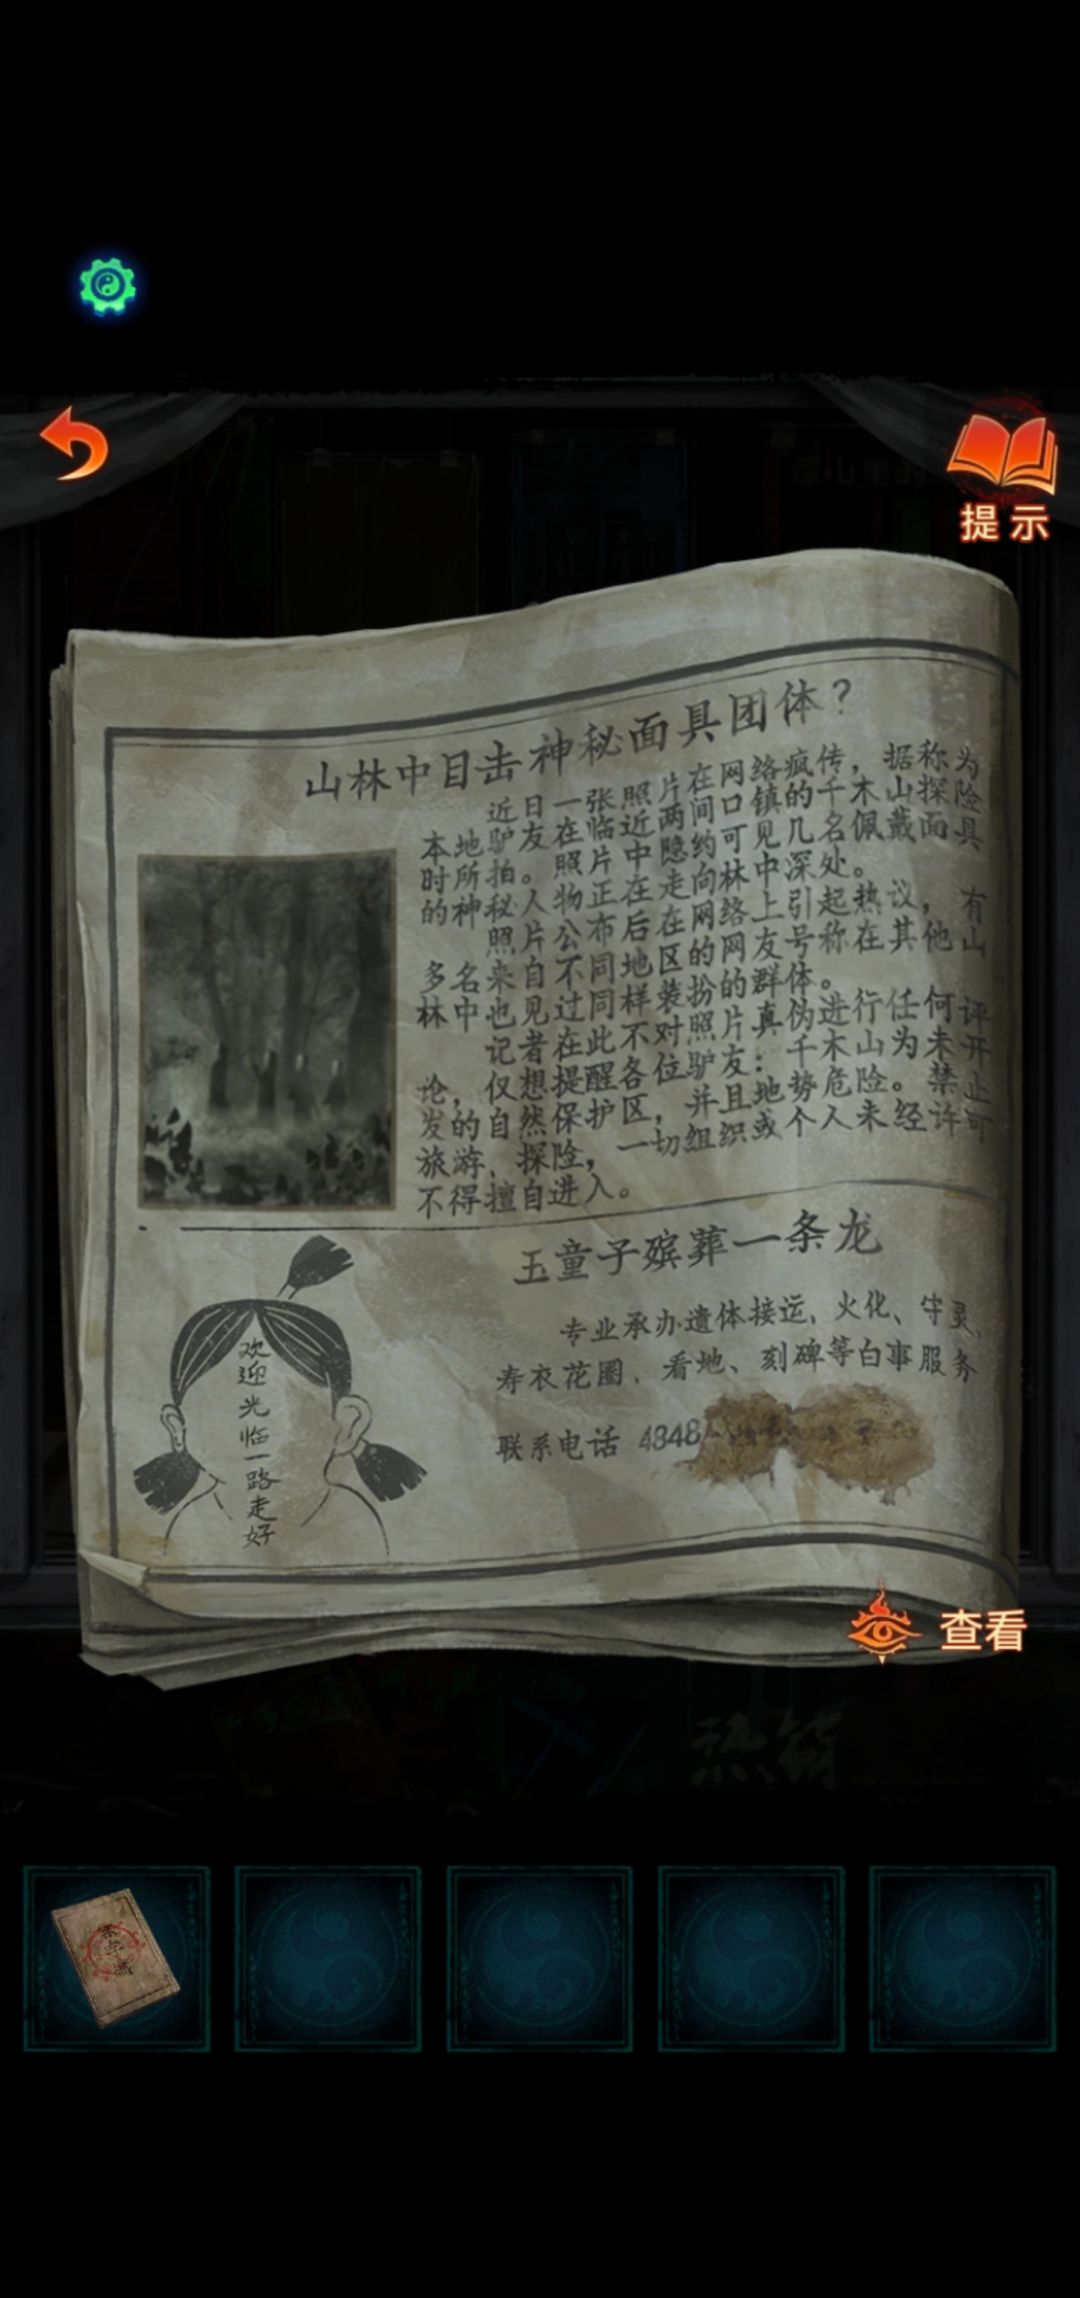 提示
深山里的
山林中目击神秘面具团体?
近日一张照片在网络疯传，据称为
本地驴友在临近两间口镇的千木山探险
时所拍。照片中隐约可见几名佩戴面具
的神秘人物正在走向林中深处。
照片公布后在网络上引起热议，有
多名来自不同地区的网友号称在其他山
林中也见过同样装扮的群体。
记者在此不对照片真伪进行任何评
论，仅想提醒各位驴友：千木山为未开
发的自然保护区，并且地势危险。禁止
旅游、探险，一切组织或个人未经许可
不得擅自进入。
玉童子殡葬一条龙
专业承办遗体接运、火化、守灵、
寿衣花圈、看地、刻碑等白事服务
联系电话 4848
欢迎光临一路走好
查看
热销